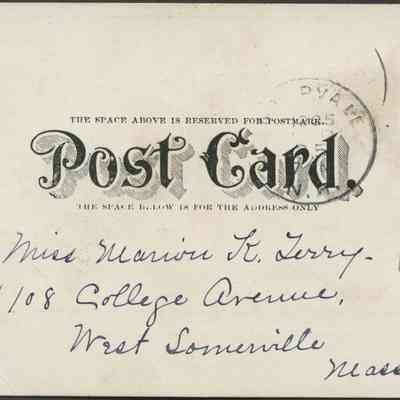 THE SPACE ABOVE IS RESERVED FOR POSTMARK.
Post Card.
THE SPACE BELOW IS FOR THE ADDRESS ONLY
Miss Marion K. Terry-
108 College Avenue,
West Somerville
Mass